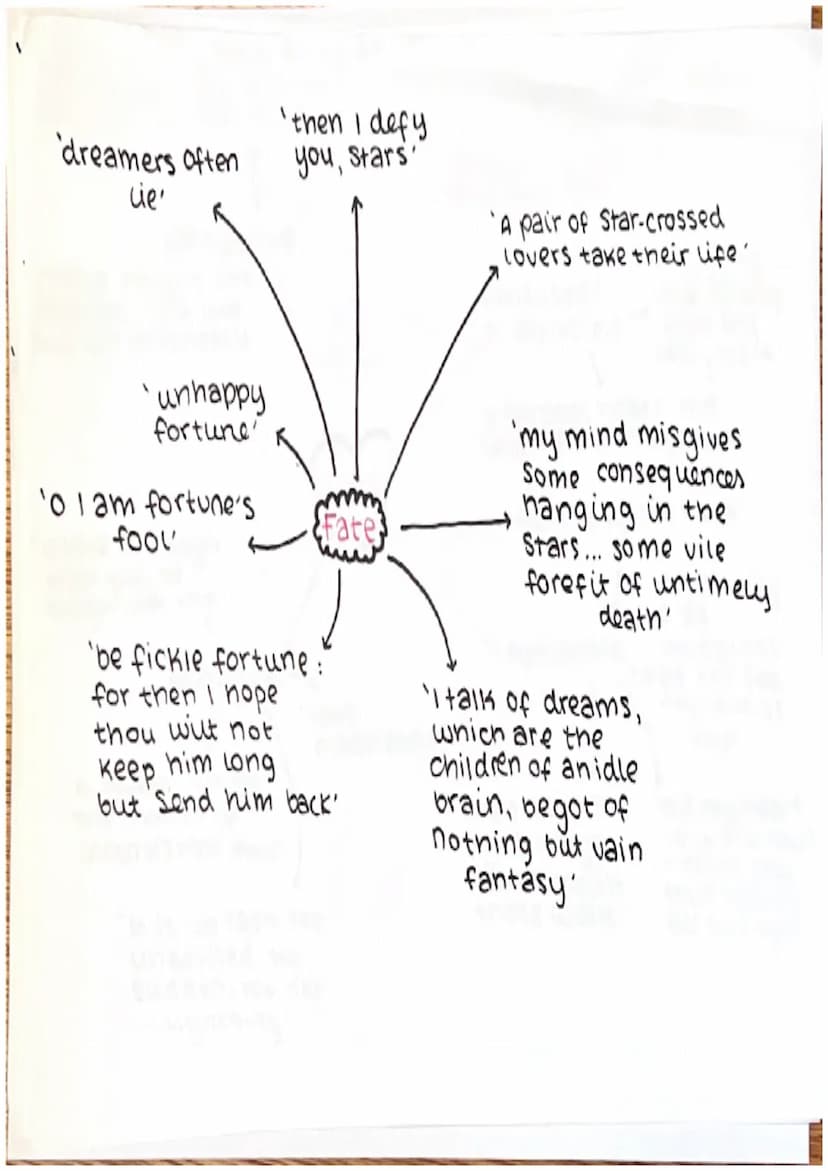 'then I defy
you, stars'
'dreamers often
lie'
'A pair of star-crossed
lovers take their life'
'unhappy
fortune'
'my mind misgives
some consequences
hanging in the
stars... some vile
forefit of untimely
death'
'O I am fortune's
fool'
Fate
'be fickle fortune:
for then I hope
thou wilt not
keep him long
but send him back'
'I talk of dreams,
which are the
children of an idle
brain, begot of
nothing but vain
fantasy'